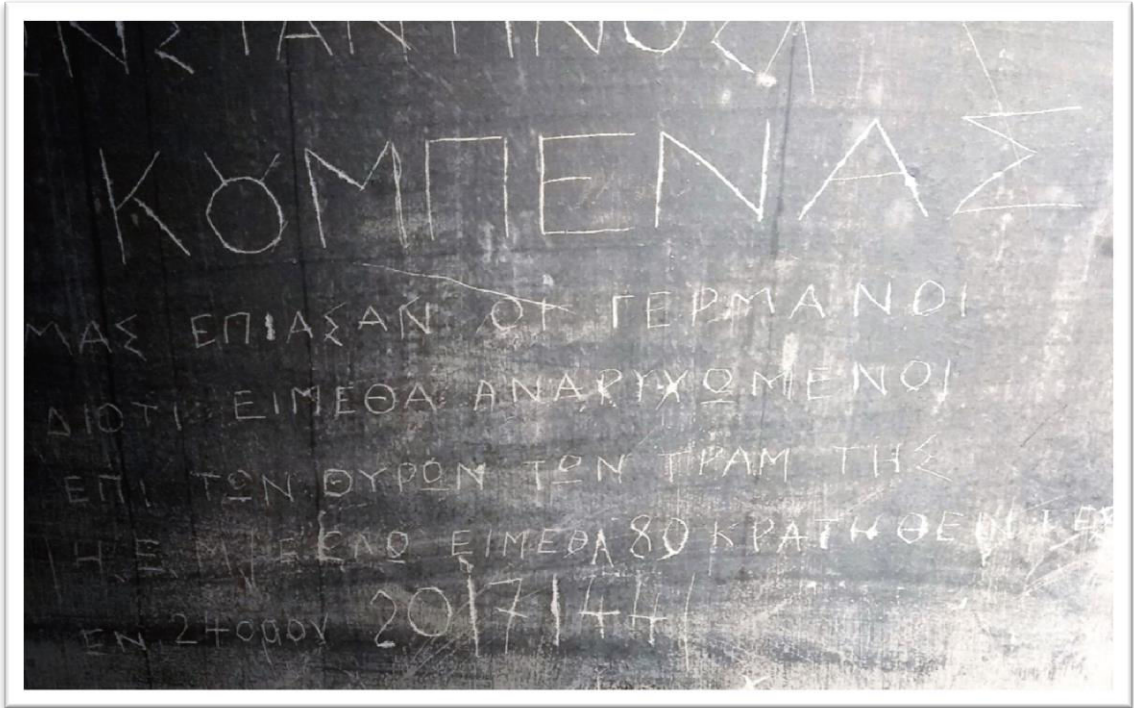 ΝΣΤΑΝΤΙΝΟΣ
ΚΟΜΠΕΝΑΣ
ΜΑΣ ΕΠΙΑΣΑΝ ΟΙ ΓΕΡΜΑΝΟΙ
ΔΙΟΤΙ ΕΙΜΕΘΑ ΑΝΑΡΥΧΩΜΕΝΟΙ
ΕΠΙ ΤΩΝ ΘΥΡΩΝ ΤΩΝ ΤΡΑΜ ΤΗΣ
ΕΔΩ ΕΙΜΕΘΑ 80 ΚΡΑΤΗΘΕΝ
ΕΝ 24ορον 20171441